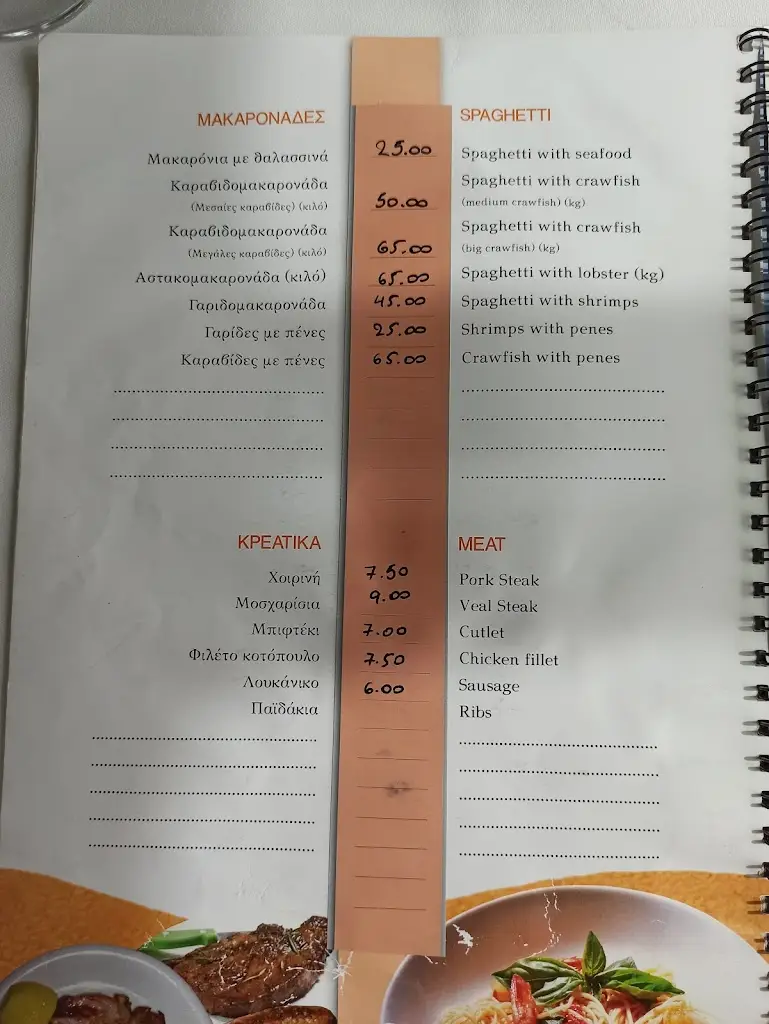 ΜΑΚΑΡΟΝΑΔΕΣ SPAGHETTI
Μακαρόνια με θαλασσινά 25.00 Spaghetti with seafood
Καραβιδομακαρονάδα Spaghetti with crawfish
(Μεσαίες καραβίδες) (κιλό) 50.00 (medium crawfish) (kg)
Καραβιδομακαρονάδα Spaghetti with crawfish
(Μεγάλες καραβίδες) (κιλό) 65.00 (big crawfish) (kg)
Αστακομακαρονάδα (κιλό) 65.00 Spaghetti with lobster (kg)
Γαριδομακαρονάδα 45.00 Spaghetti with shrimps
Γαρίδες με πένες 25.00 Shrimps with penes
Καραβίδες με πένες 65.00 Crawfish with penes
ΚΡΕΑΤΙΚΑ MEAT
Χοιρινή 7.50 Pork Steak
Μοσχαρίσια 9.00 Veal Steak
Μπιφτέκι 7.00 Cutlet
Φιλέτο κοτόπουλο 7.50 Chicken fillet
Λουκάνικο 6.00 Sausage
Παϊδάκια Ribs